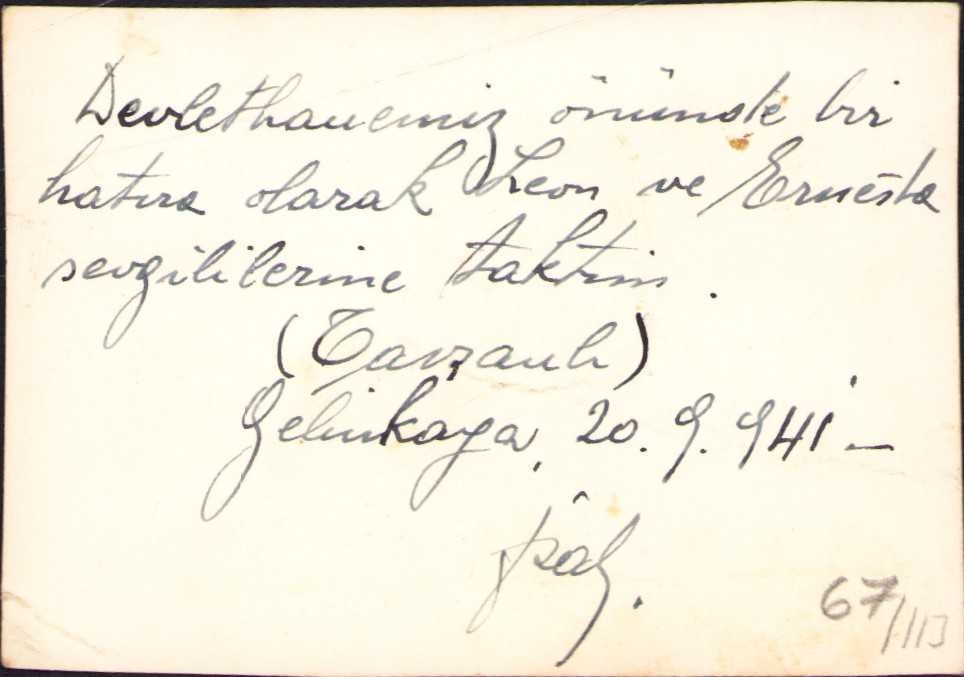 Devlethanemiz önünde bir
hatıra olarak Leon ve Ernesta
sevgililerine taktim.
(Tavzanlı)
Gelinkaya, 20.9.941 —
67/113